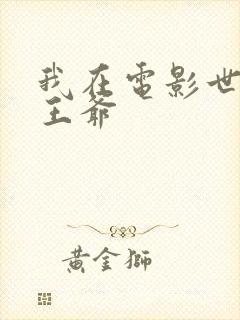 我在電影世
王爺
黃金獅